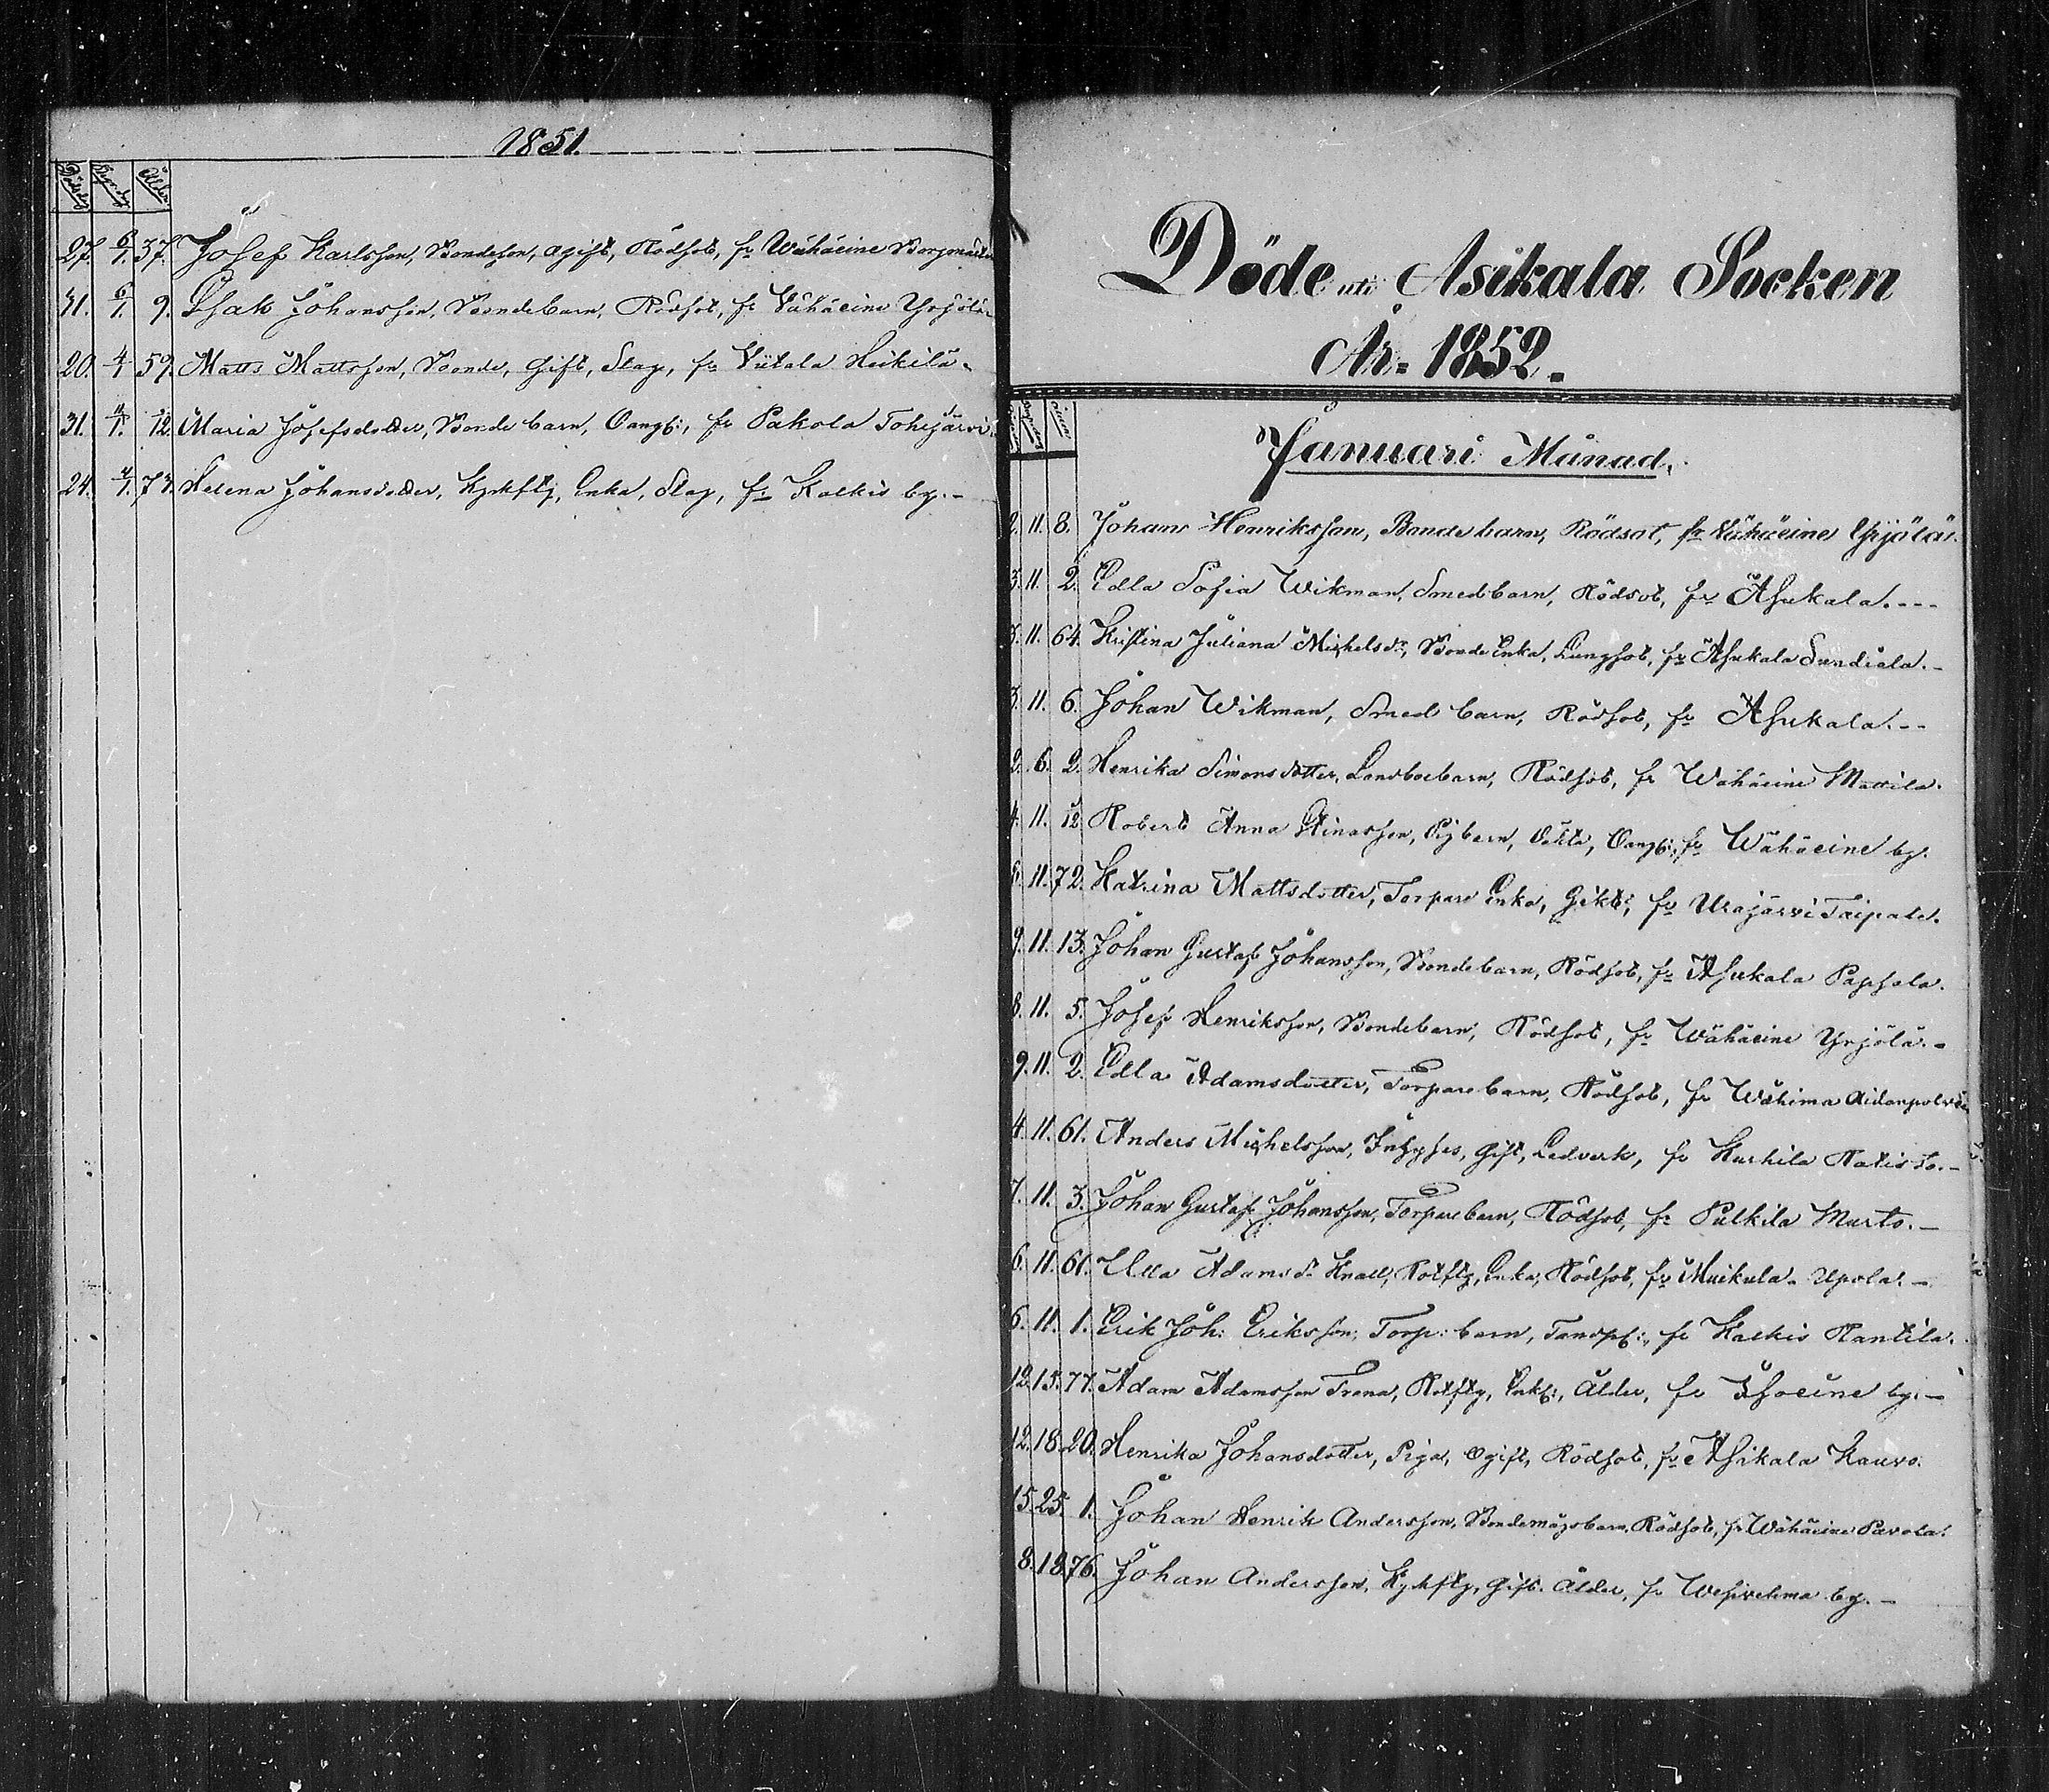 1851.
Dödsdag Begr.dag Ålder
27. 6/1. 37. Josef Karlsson, Bondeson, ogift, Rödsot, fr. Wähäeine
31. 6/1. 9. Isak Johansson, Bondebarn, Rödsot, fr. Vähäeine Yrjölä.
20. 4/1 59. Matts Mattsson, Bonde, Gift, Slag, fr. Viitala Heikilä.
31. 11/1. 12. Maria Josefsdotter, Bonde barn, Oangf:, fr. Pakola Tohijärvi.
24. 4/1. 73. Helena Johansdotter, Kyrkftg, Enka, Slag, fr. Kalkis by.-
Döde uti Asikala Socken
År. 1852.
Januari Månad.
2. 11. 8. Johan Henriksson, Bondebarn, Rödsot, fr. Vähäeine Yrjölä.
3. 11. 2. Edla Sofia Wikman, Smedbarn, Rödsot, fr. Asikala.---
3. 11. 64. Kristina Juliana Michelsdr, Bonde Enka, Lungsot, fr. Asikala Sundiala.-
3. 11. 6. Johan Wikman, Smed barn, Rödsot, fr. Asikala.--
2. 6. 2. Henrika Simonsdotter, Landboebarn, Rödsot, fr. Wähäeine Mattila.
4. 11. 12 Robert Anna Stinasson, Pigbarn, Oäkta, Oangf:, fr. Wähäeine by.
11. 72. Katrina Mattsdotter, Torpare Enka, Gikt, fr. Urajärvi Taipale.
9. 11. 13. Johan Gustaf Johansson, Bondebarn, Rödsot, fr. Asikala Papsala.
8. 11. 5. Josef Henriksson, Bondebarn, Rödsot, fr. Wähäeine Yrjölä.-
9. 11. 2. Edla Adamsdotter, Torparebarn, Rödsot, fr. Wähima
4. 11. 61. Anders Michelsson, Inhyses, Gift, Ledverk, fr. Kurhila
7. 11. 3. Johan Gustaf Johansson, Torparebarn, Rödsot, fr. Pulkila Murto.-
6. 11. 61. Ulla Adamsdr Knall, Rotftg, Enka, Rödsot, fr. Muikula Upola.-
6. 11. 1. Erik Joh: Eriksson, Torp: barn, Tandspf:, fr. Kalkis Rantila.
12. 15. 77. Adam Adamsson Frena, Rotftg, Enkl:, Ålder, fr. Isoeine by.-
12. 18. 20. Henrika Johansdotter, Piga, Ogift, Rödsot, fr. Asikala Kauro.
15. 25. 1. Johan Henrik Andersson, Bondemågsbarn, Rödsot, fr. Wähäeine Pavola.
8. 18. 76. Johan Andersson, Kyrkftg, Gift. Ålder, fr. Wesivehma by.-